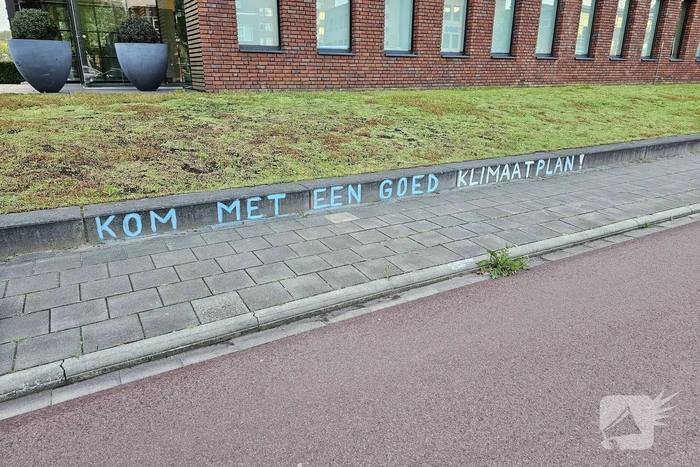 KOM MET EEN GOED KLIMAATPLAN!